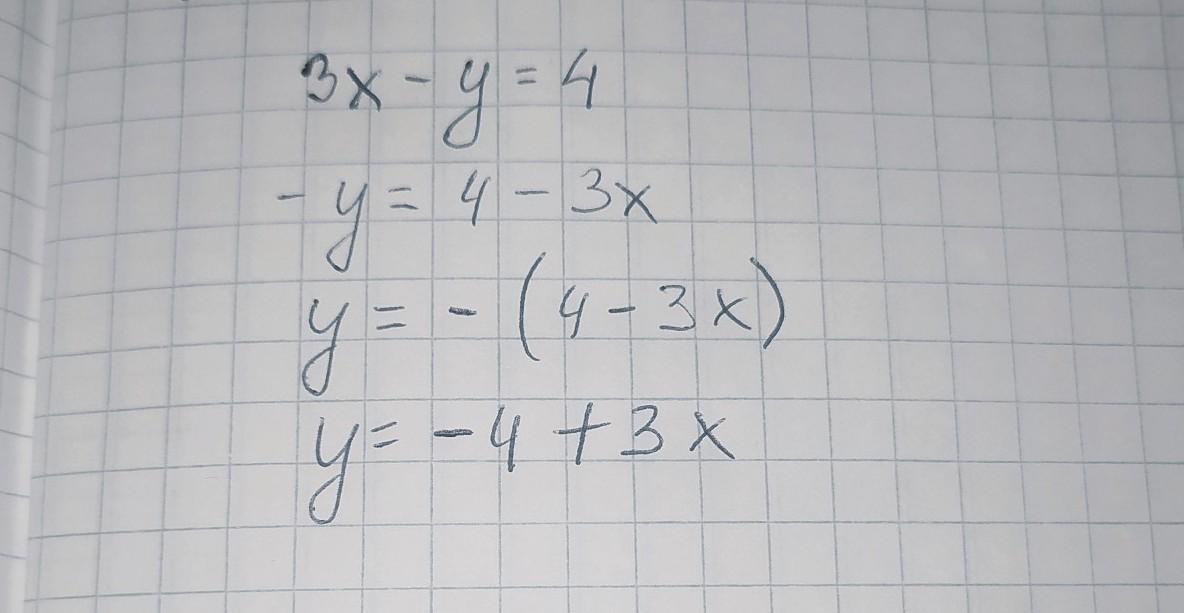 3x - y = 4
- y = 4 - 3x
y = - (4 - 3x)
y = -4 + 3x